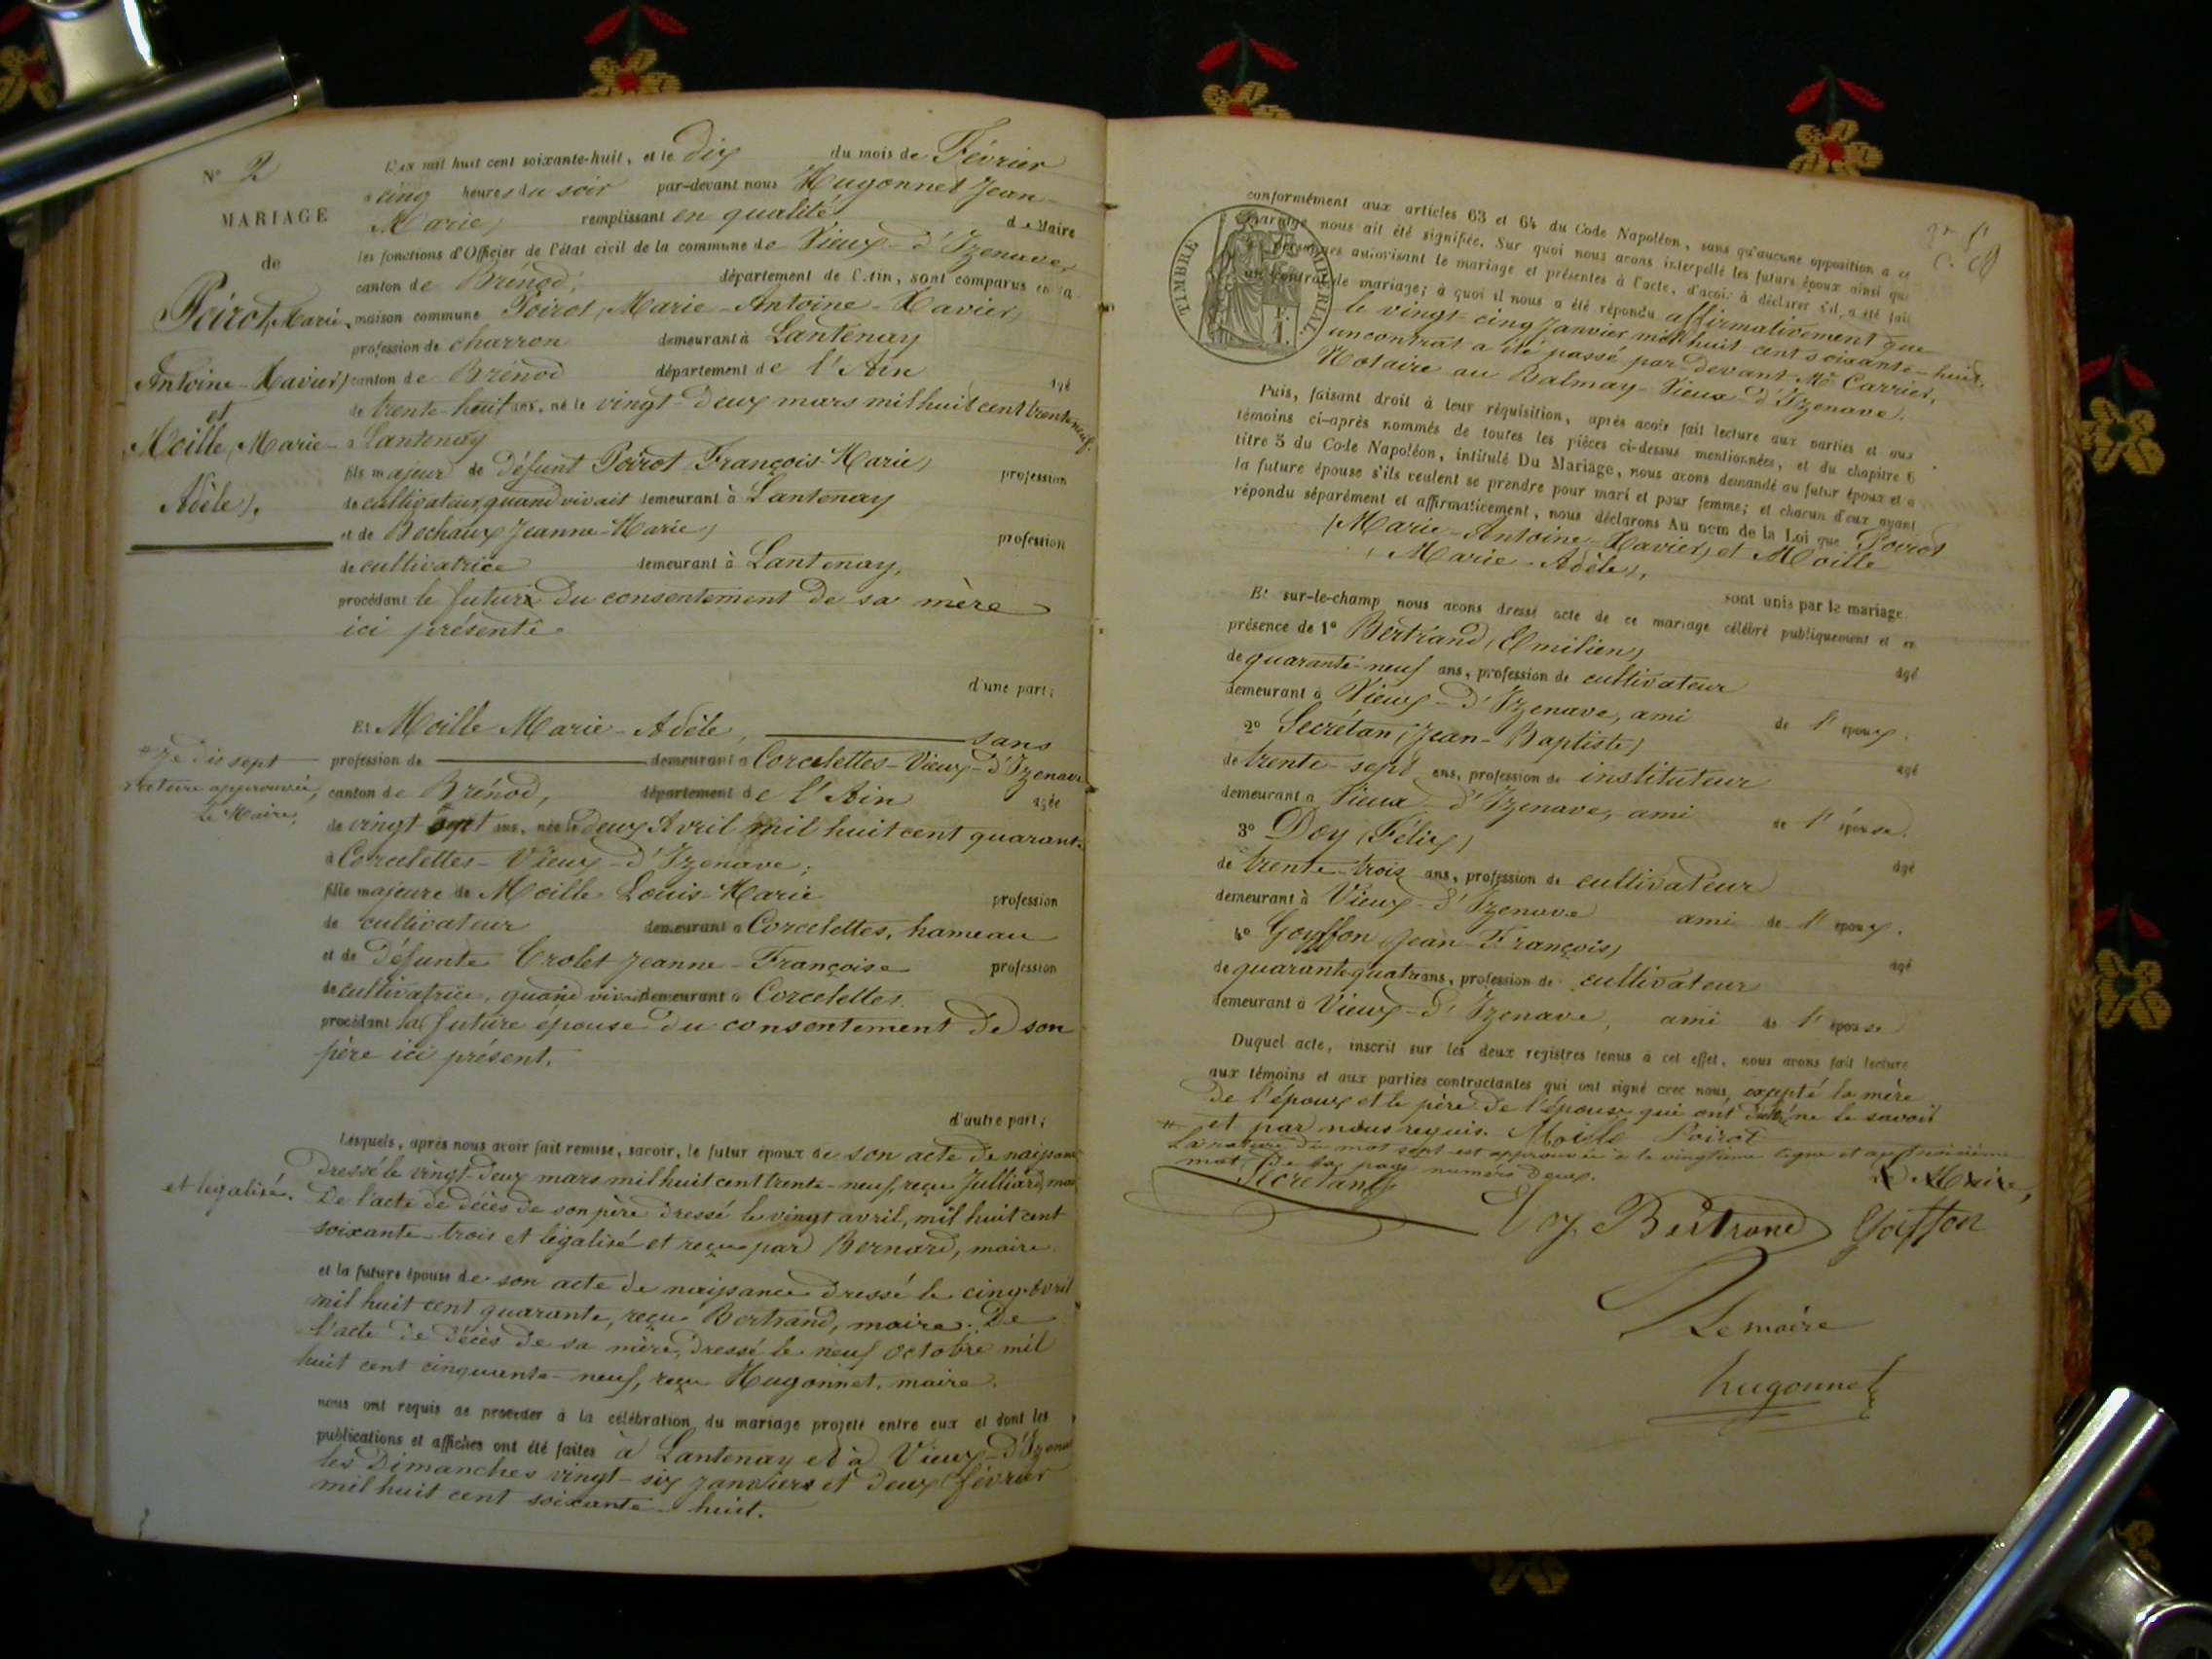 N° 2
MARIAGE
de
Poirot, Marie-
Antoine-Xavier,
et
Moille, Marie-
Adèle,
L'an mil huit cent soixante-huit, et le dix du mois de Février
à cinq heures du soir par-devant nous Hugonnet Jean-
Marie, remplissant en qualité de Maire
les fonctions d'Officier de l'état civil de la commune de Vieux-d'Izenave,
canton de Brénod, département de l'Ain, sont comparus en la
maison commune Poirot, Marie-Antoine-Xavier,
profession de charron demeurant à Lantenay
canton de Brénod département de l'Ain âgé
de trente-huit ans, né le vingt-deux mars mil huit cent trente-neuf.
à Lantenay
fils majeur de défunt Poirot François-Marie, profession
de cultivateur, quand vivait demeurant à Lantenay
et de Bochaux Jeanne-Marie, profession
de cultivatrice demeurant à Lantenay,
procédant le futur du consentement de sa mère
ici présente
d'une part;
Et Moille Marie-Adèle, sans
profession de demeurant à Corcelettes-Vieux-d'Izenave
canton de Brénod, département de l'Ain âgée
de vingt sept ans, née le deux Avril mil huit cent quarante
à Corcelettes-Vieux-d'Izenave;
fille majeure de Moille Louis-Marie profession
de cultivateur demeurant à Corcelettes, hameau
et de défunte Crolet Jeanne-Françoise profession
de cultivatrice, quand vivait demeurant à Corcelettes.
procédant la future épouse du consentement de son
père ici présent.
d'autre part;
Lesquels, après nous avoir fait remise, savoir, le futur époux de son acte de naissance
dressé le vingt-deux mars mil huit cent trente-neuf, reçu Julliard, maire
et légalisé. De l'acte de décès de son père dressé le vingt avril, mil huit cent
soixante-trois et légalisé et reçu par Bernard, maire
et la future épouse de son acte de naissance dressé le cinq Avril
mil huit cent quarante, reçu Bertrand, maire. De
l'acte de décès de sa mère, dressé le neuf octobre mil
huit cent cinquante-neuf, reçu Hugonnet, maire.
nous ont requis de procéder à la célébration du mariage projeté entre eux et dont les
publications et affiches ont été faites à Lantenay et à Vieux-d'Izenave
les Dimanches vingt-six janvier et deux février
mil huit cent soixante-huit.
rature approuvée,
Le Maire,
conformément aux articles 63 et 64 du Code Napoléon, sans qu'aucune opposition à ce
mariage nous ait été signifiée. Sur quoi nous avons interpellé les futurs époux ainsi que
personnes autorisant le mariage et présentes à l'acte, d'avoir à déclarer s'il a été fait
un contrat de mariage; à quoi il nous a été répondu affirmativement que
le vingt-cinq Janvier mil huit cent soixante-huit,
un contrat a été passé par-devant Me Carrier,
Notaire au Balmay-Vieux-d'Izenave.
TIMBRE IMPERIAL
Puis, faisant droit à leur réquisition, après avoir fait lecture aux parties et aux
témoins ci-après nommés de toutes les pièces ci-dessus mentionnées, et du chapitre 6
titre 5 du Code Napoléon, intitulé Du Mariage, nous avons demandé au futur époux et à
la future épouse s'ils veulent se prendre pour mari et pour femme; et chacun d'eux ayant
répondu séparément et affirmativement, nous déclarons Au nom de la Loi que Poirot
(Marie-Antoine-Xavier) et Moille
(Marie-Adèle),
sont unis par le mariage
Et sur-le-champ nous avons dressé acte de ce mariage célébré publiquement et en
présence de 1° Bertrand (Emilien) âgé
de quarante-neuf ans, profession de cultivateur
demeurant à Vieux-d'Izenave, ami de l'époux.
2° Secrétan (Jean-Baptiste) âgé
de trente-sept ans, profession de instituteur
demeurant à Vieux-d'Izenave, ami de l'épouse.
3° Doy (Félix) âgé
de trente-trois ans, profession de cultivateur
demeurant à Vieux-d'Izenave ami de l'époux.
4° Goyffon (Jean-François) âgé
de quarante-quatre ans, profession de cultivateur
demeurant à Vieux-d'Izenave, ami de l'épouse
Duquel acte, inscrit sur les deux registres tenus à cet effet, nous avons fait lecture
aux témoins et aux parties contractantes qui ont signé avec nous, excepté la mère
de l'époux et le père de l'épouse qui ont déclaré ne le savoir
et par nous requis. Moille Poirot
La rature du mot sept est approuvée à la vingtième ligne et au troisième
mot de la page numéro deux. Le Maire,
Secretan
Doy Bertrand Goiffon
Le maire
hugonnet